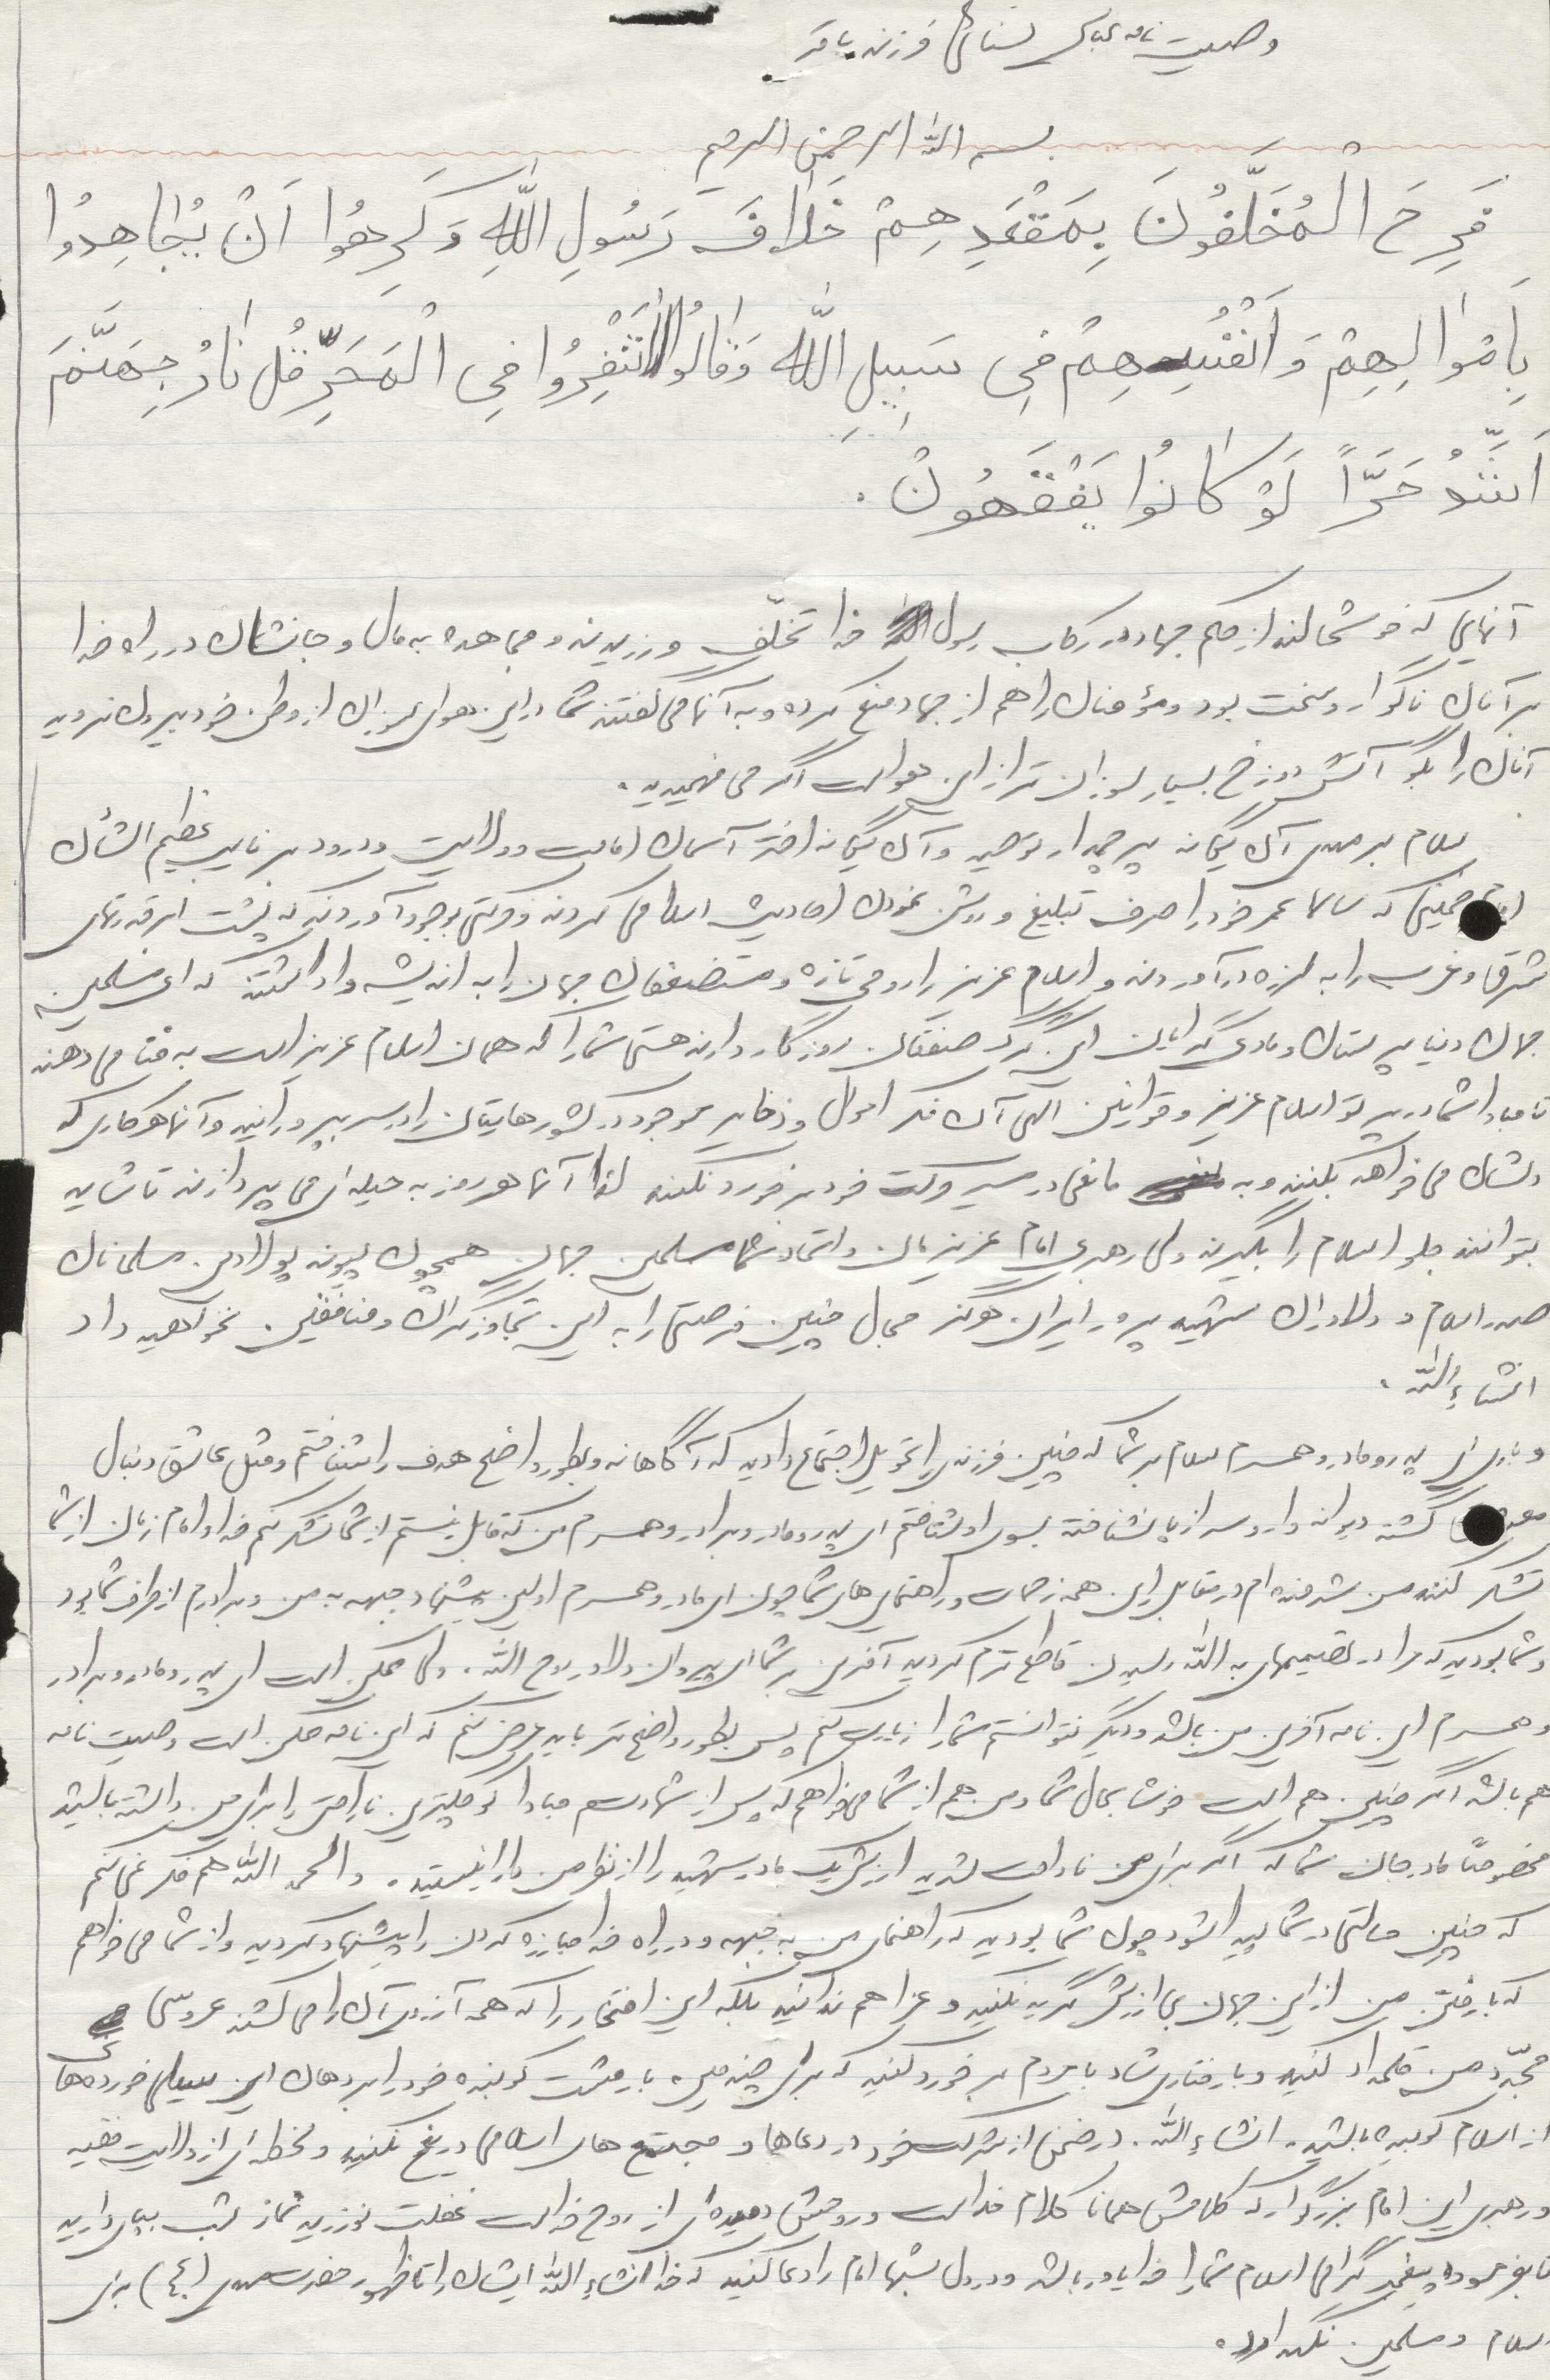 وصیت نامه عباس فرزند باقر
بسم الله الرحمن الرحیم
فَرِحَ الْمُخَلَّفُونَ بِمَقْعَدِهِمْ خَلافَ رَسُولِ اللّهِ وَ كَرِهُوا اَنْ يُجاهِدُوا
بِاَمْوالِهِمْ وَ اَنْفُسِهِمْ فِی سَبِيلِ اللّه وَ قالُوا لاتَنْفِرُوا فِی الْحَرِّ قُلْ نارُ جَهَنَّمَ
اَشَدُّ حَرّاً لَوْ كانُوا يَفْقَهُونْ .
آنهایی که خوشحالند از حکم جهاد در رکاب رسول خدا تخلّف ورزیدند و مجاهده به مال و جانشان در راه خدا
بر آنان ناگوار و سخت بود و مؤمنان را هم از جهاد منع کرده و به آنها می گفتند شما در این هوای سوزان از وطن خود بیرون نروید
آنان را بگو آتش دوزخ بسیار سوزان تر از این هواست اگر می فهمیدید .
سلام بر مهدی آن یگانه پرچمدار توحید و آن یگانه اختر آسمان امامت و ولایت و درود بر نایب عظیم الشأن
امام خمینی که سالها عمر خود را صرف تبلیغ و روشن نمودن احادیث اسلامی کردند و حرکتی بوجود آوردند که پشت ابرقدرتهای
شرق و غرب را به لرزه در آوردند و اسلام عزیز را روحی تازه و مستضعفان جهان را به اندیشه واداشتند که ای مسلمین
جهان دنیا پرستان و مادی گرایان این گرگ صفتان روزگار دارند هستی شما را که همان اسلام عزیز است به فنا می دهند
تا مبادا شما در پرتو اسلام عزیز و قوانین الهی آن فکر اموال و ذخایر موجود در کشورهایتان را در سر بپرورانید و آنها هر کاری که
دلشان می خواهد بکنند و به مانعی در مسیر حرکت خود برخورد نکنند لذا آنها هر روز به حیله ای می پردازند تا شاید
بتوانند جلو اسلام را بگیرند ولی رهبری امام عزیزمان و اتحاد شما مسلمین جهان همچون پیوند پولادین مسلمانان
صدر اسلام و دلاوران شهید پرور ایران هرگز مجال چنین فرصتی را به این تجاوزگران و منافقین نخواهید داد
انشاءالله .
و باری ای پدر و مادر و همسرم سلام بر شما که چنین فرزندی را تحویل اجتماع دادید که آگاهانه و بطور واضح هدف را شناختم و مثل عاشق دنبال
گشته دیوانه وار و سر از پا نشناخته بسوی او شتافتم ای پدر و مادر و برادر و همسرم من که قابل نیستم از شما تشکر کنم خدا و امام زمان از شما
تشکر کنند من شرمنده ام در مقابل این همه زحمات و راهنمایی های شما چون ای مادر و همسرم اولین پیشنهاد جبهه به من و برادرم از طرف شما بود
و شما بودید که مرا در تصمیمهای به الله رسیدن قاطع ترم کردید آفرین بر شما ای پیروان دلاور روح الله . ولی ممکن است ای پدر و مادر و برادر
و همسرم این نامه آخرین من باشد و دیگر نتوانستم شما را زیارت کنم پس بطور واضح تر باید عرض کنم که این نامه ممکن است وصیت نامه
هم باشد اگر چنین هم است خوشا بحال شما و من هم از شما می خواهم که پس از شهادتم مبادا کوچکترین ناراحتی را برای من داشته باشید
مخصوصاً مادر جان شما که اگر برای من ناراحت شدید ارزش یک مادر شهید را از نظر من دارا نیستید . و الحمد الله هم فکر نمی کنم
که چنین حالتی در شما پیدا شود چون شما بودید که راهنمای من به جبهه و در راه خدا مبارزه کردن را پیشنهاد کردید و از شما می خواهم
که با رفتن من از این جهان بی ارزش گریه نکنید و عزا هم ندانید بلکه این افتخار را که همه آرزوی آن را می کشند عروسی
مجدّد من قلمداد کنید و با رفتاری شاد با مردم برخورد کنید که برای چندمین بار مشت کوبنده خود را بر دهان این سیلی خورده ها
از اسلام کوبیده باشید . انشاءالله . در ضمن از شرکت خود در دعاها و مجتمع های اسلامی دریغ نکنید و لحظه ای از ولایت فقیه
و رهبری این امام بزرگوار که کلامش همانا کلام خداست و روحش دمیده ای از روح خداست غفلت نورزید نماز شب بپای دارید
تا بفرموده پیغمبر گرامی اسلام شما را خدا یاور باشد و در دل شبها امام را دعا کنید که خدا انشاءالله ایشان را تا ظهور حضرت مهدی (ع) برای
اسلام و مسلمین نگهدارد .